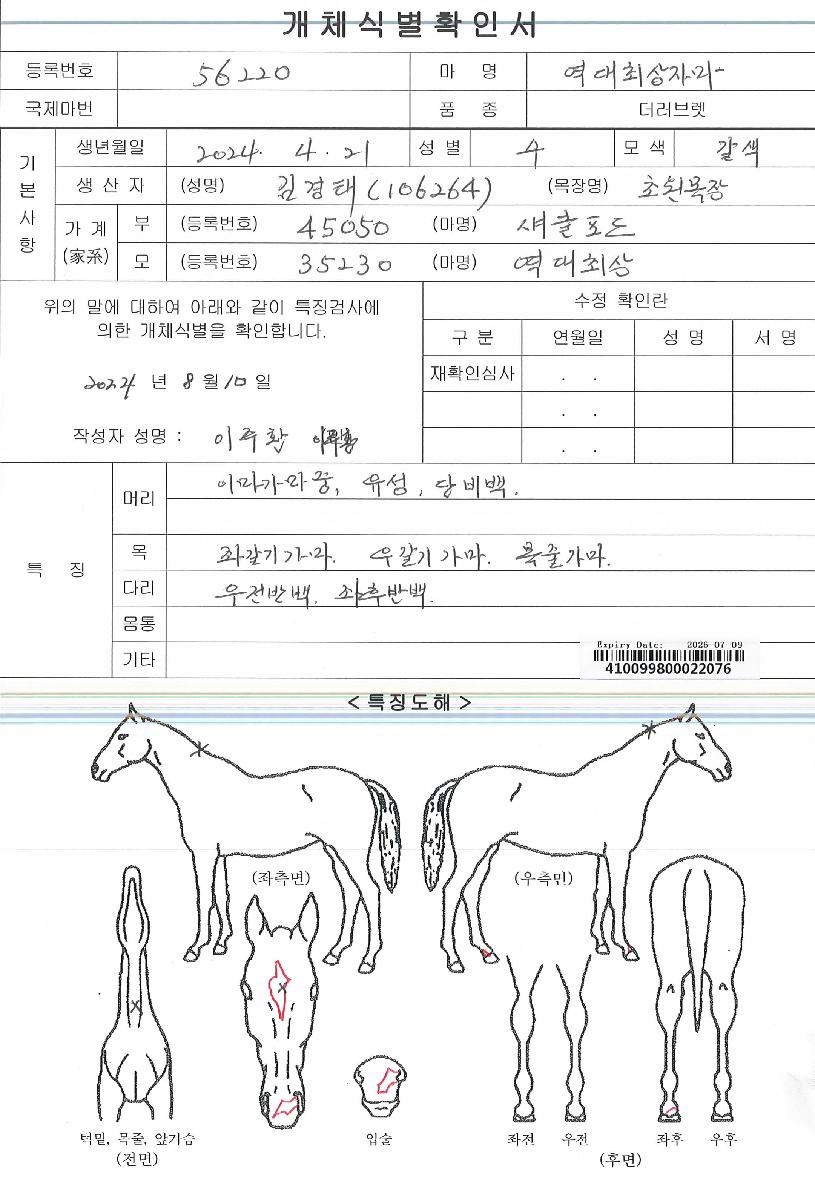 개체식별확인서
등록번호 56220 마 명 역대최상자리
국제마번 품 종 더러브렛
기본사항
생년월일 2024. 4. 21 성 별 수 모 색 갈색
생 산 자 (성명) 김경태(106264) (목장명) 초원목장
가 계 (家系) 부 (등록번호) 45050 (마명) 섀클포드
모 (등록번호) 35230 (마명) 역대최상
위의 말에 대하여 아래와 같이 특징검사에
의한 개체식별을 확인합니다.
2024 년 8 월 10 일
작성자 성명 : 이주환
수정 확인란
구 분 연월일 성 명 서 명
재확인심사 . .
. .
. .
특 징
머리 이마가마중, 유성, 단비백.
목 좌갈기가마. 우갈기가마. 목줄가마.
다리 우전반백. 좌후반백.
몽통
기타
Expiry Date: 2026-07-09
410099800022076
< 특징도해 >
(좌측면) (우측면)
턱밑, 목줄, 앞가슴 입술 좌전 우전 좌후 우후
(전면) (후면)